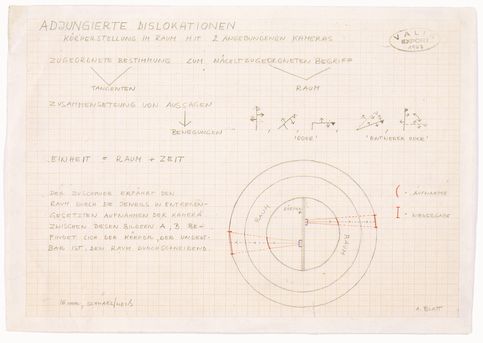 ADJUNGIERTE DISLOKATIONEN
KÖRPERSTELLUNG IM RAUM MIT 2 ANGEBUNDENEN KAMERAS
VALIE
EXPORT
ZUGEORDNETE BESTIMMUNG ZUM NÄCHSTZUGEORDNETEN BEGRIFF
TANGENTEN
RAUM
ZUSAMMENSETZUNG VON AUSSAGEN
BEWEGUNGEN
'ODER'
'ENTWEDER ODER'
EINHEIT = RAUM + ZEIT
DER ZUSCHAUER ERFÄHRT DEN
RAUM DURCH DIE JEWEILS IN ENTGEGEN-
GESETZTEN AUFNAHMEN DER KAMERA
ZWISCHEN DIESEN BILDERN A, B BE-
FINDET SICH DER KÖRPER, DER UNSICHT-
BAR IST, DEN RAUM DURCHSCHREIBEND.
RAUM
KÖRPER
RAUM
AUFNAHME
WIEDERGABE
16 mm, SCHWARZ/WEIß
1. BLATT